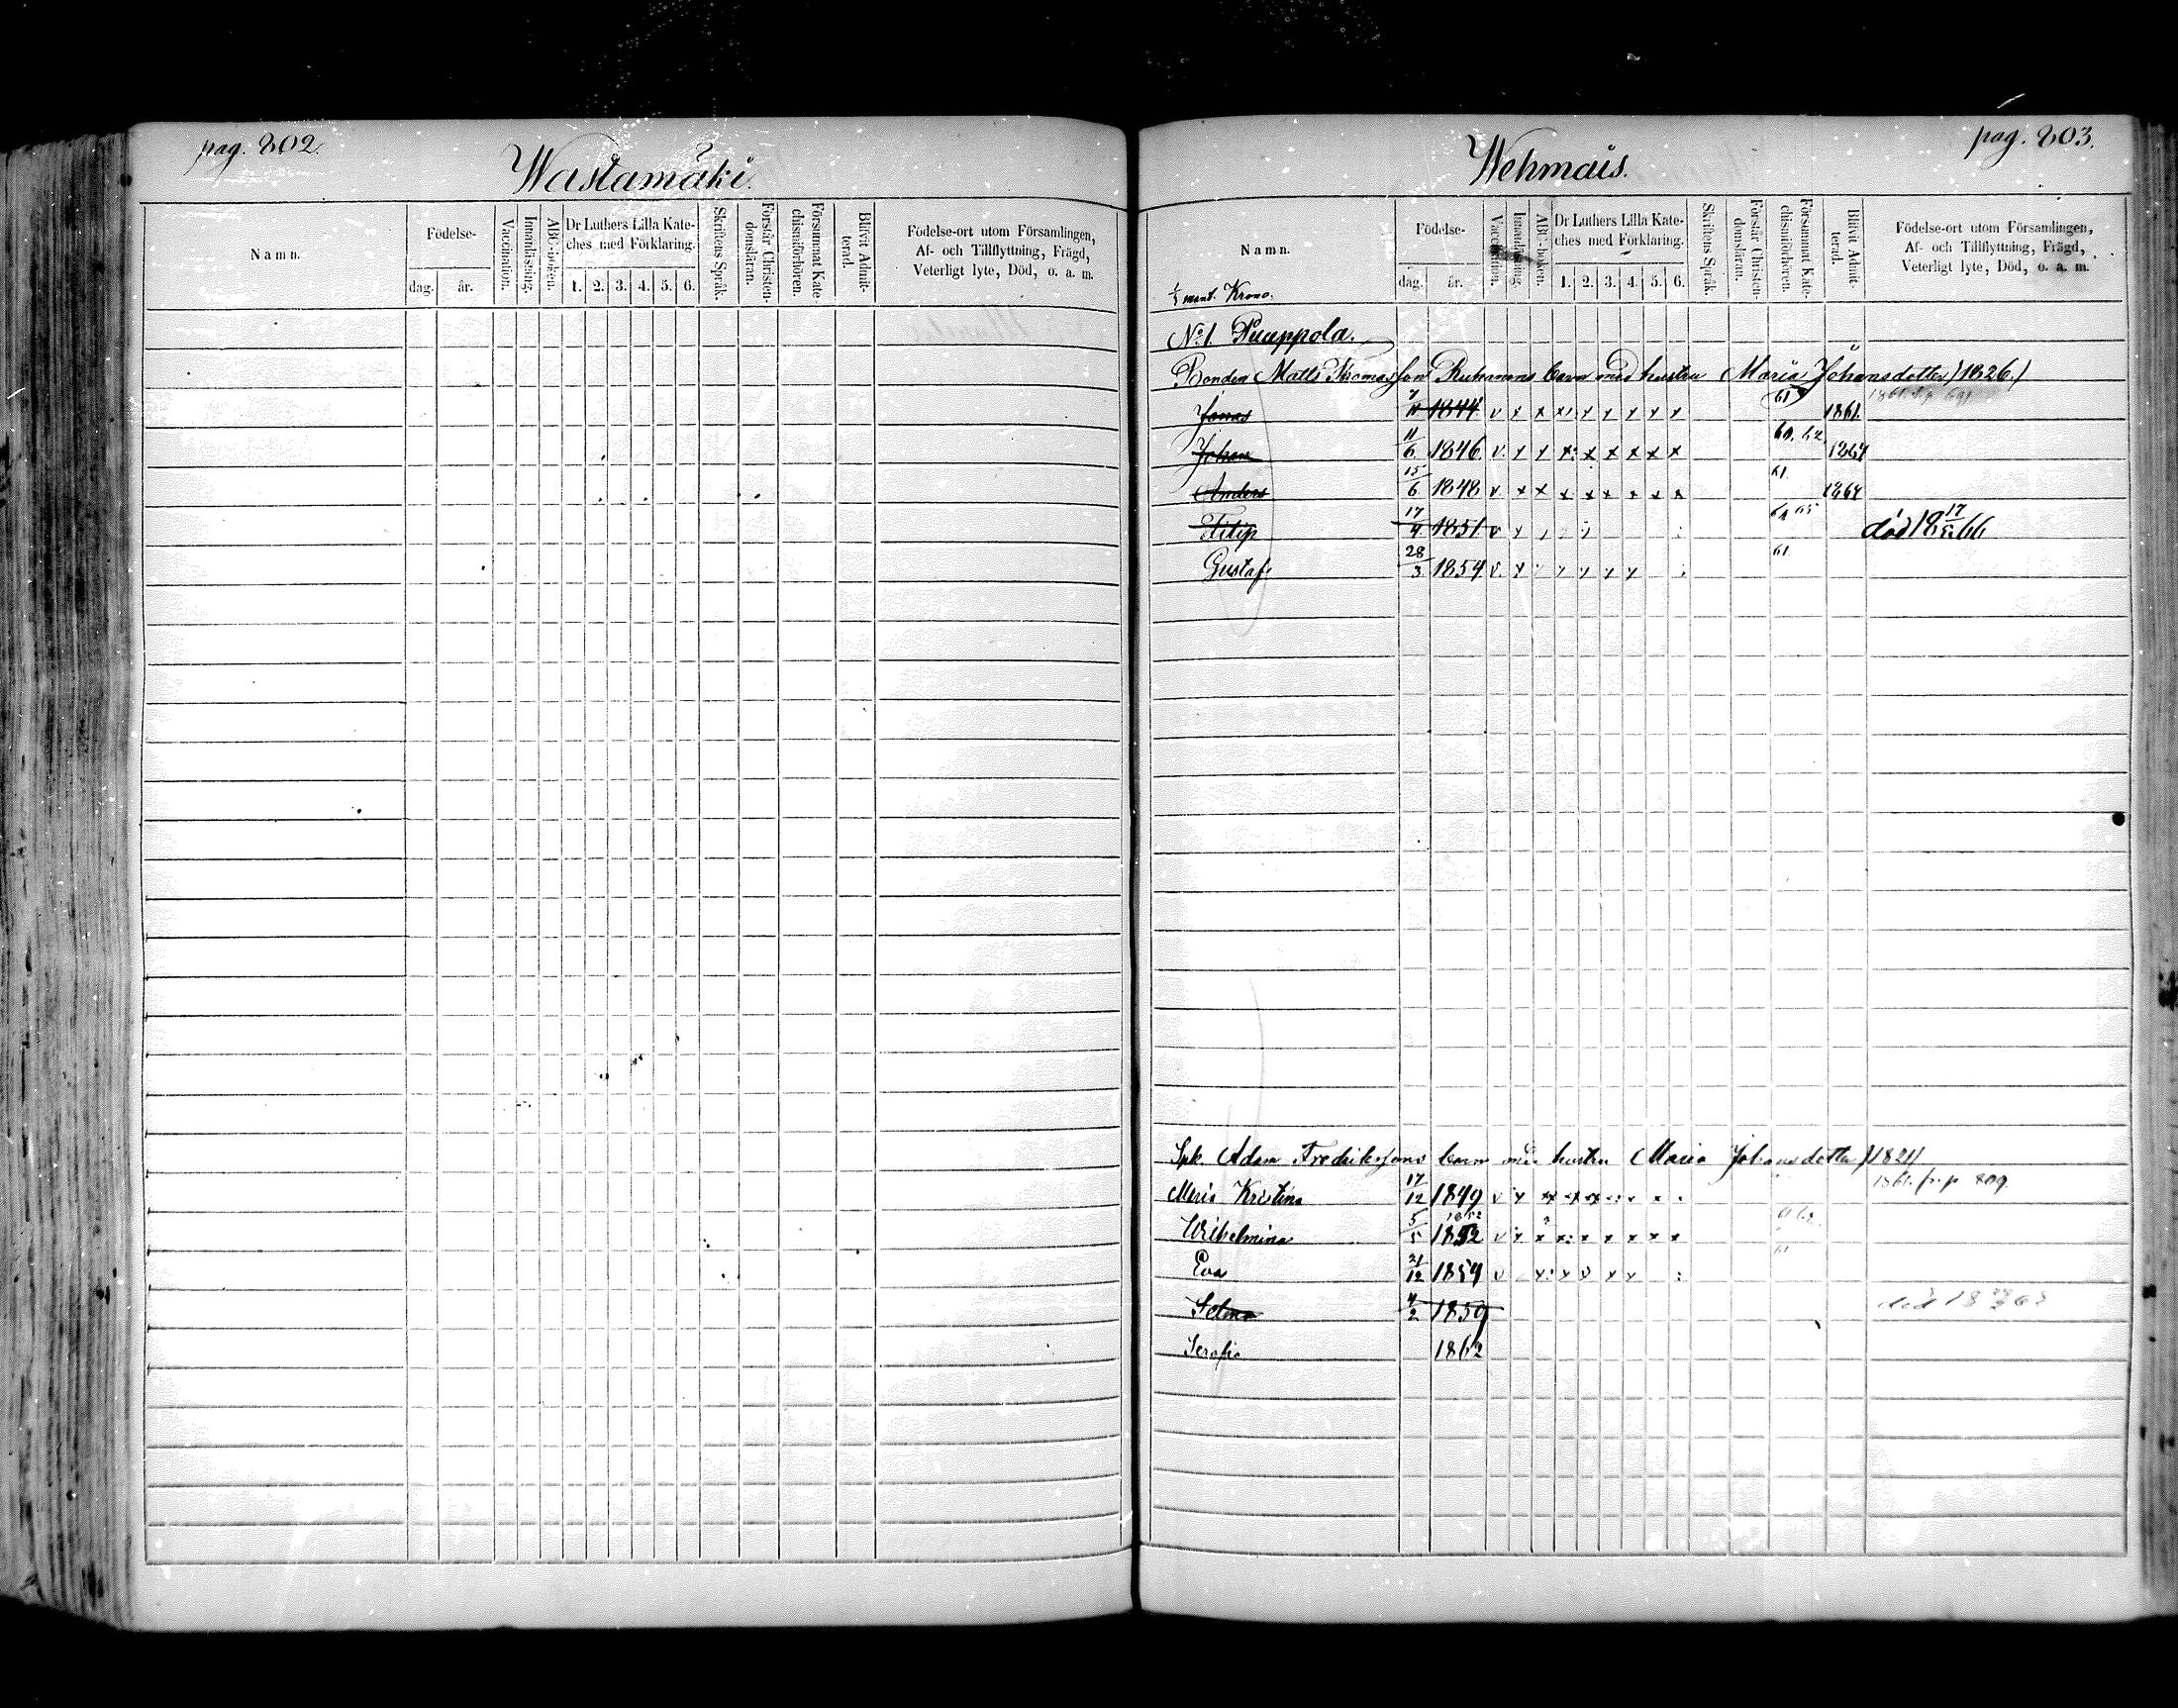 pag. 802.
Wastamäki.
Namn.
Födelse-
dag.
år.
Vaccination.
Innanläsning.
ABC-boken.
Dr Luthers Lilla Kate-
ches med Förklaring.
1. 2. 3. 4. 5. 6.
Skriftens Språk.
Förstår Christen-
domsläran.
Försummat Kate-
chismiförhören.
Blifvit Admit-
terad.
Födelse-ort utom Församlingen,
Af- och Tillflyttning, Frägd,
Veterligt lyte, Död, o. a. m.
pag. 803.
Wehmais.
Namn.
Födelse-
dag.
år.
Vaccination.
Innanläsning.
ABC-boken.
Dr Luthers Lilla Kate-
ches med Förklaring.
1. 2. 3. 4. 5. 6.
Skriftens Språk.
Förstår Christen-
domsläran.
Försummat Kate-
chismiförhören.
Blifvit Admit-
terad.
Födelse-ort utom Församlingen,
Af- och Tillflyttning, Frägd,
Veterligt lyte, Död, o. a. m.
mant. Krono.
No 1. Puuppola.
Bonden Matts Thomasson barn med hustru Maria Johansdotter /1826./
Jonas 1844 v x x x x x x x x 61 1861.
Johan 11/6 1846 v x x x x x x x x 60. 62 1864
Anders 15/6 1848 v x x x x x x x x 61 1864
Filip 17/4 1851 v 65 död 18 17/5 66
Gustaf 28/3 1854 v x 61
Spk. Adam Fredrikssons barn med hustru Maria Johansdotter /1821/
Maria Kristina 17/12 1849 v x fr. p 809
Wilhelmina 5/5 1852 v x x x x x x x x
Eva 21/12 1854 v 61
Selma 4/2 1859 död 18 65
Serafia 1862